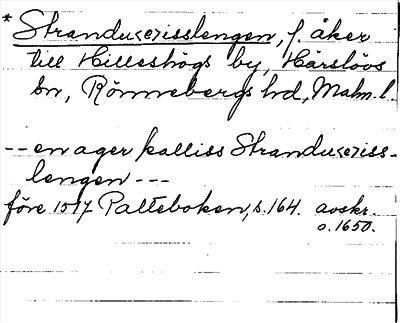 * Strandu<erisslengen, f. åker
till Hilleshögs by, Härslövs
sn, Rönnebergs hd, Malm. l.
-- en ager kalliss Strandu<eriss-
lengen ---
före 1597 Palteboken, s. 164. avskr.
o. 1650.